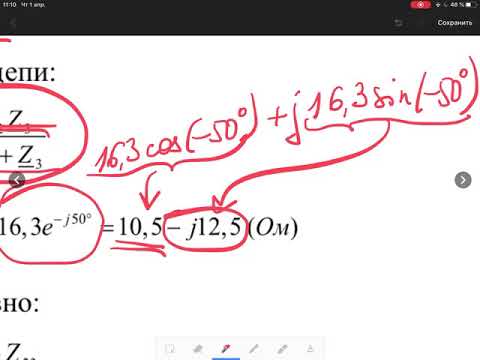 11:10 Чт 1 апр. 48 %
Сохранить
цепи:
16,3cos(−50°) + j16,3sin(−50°)
Z₃
+ Z₃
16,3e^{−j50°} = 10,5 − j12,5 (Ом)
вно: